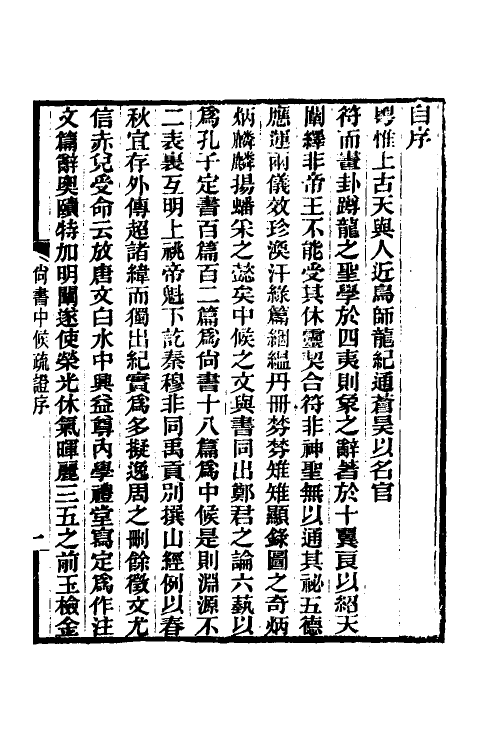 自序
粤惟上古天與人近鳥師龍紀通蒼昊以名官
符而畫卦蹲龍之聖學於四夷則象之辭著於十翼良以絕天
闡繹非帝王不能受其休靈契合符非神聖無以通其祕五德
應運兩儀效珍渙汗綠篇絪縕丹冊棼棼雉雉顯錄圖之奇炳
炳麟麟揚蟠采之懿矣中候之文與書同出鄭君之論六藝以
爲孔子定書百篇百二篇爲尙書十八篇爲中候是則淵源不
二表裏互明上祧帝魁下訖秦穆非同禹貢別撰山經例以春
秋宜存外傳超諸緯而獨出紀實爲多擬逸周之刪餘徵文尤
信赤兒受命云放唐文白水中興益尊內學禮堂寫定爲作注
文篇辭奧賾特加明闡遂使榮光休氣暉麗三五之前玉檢金
尙書中候疏證序
一